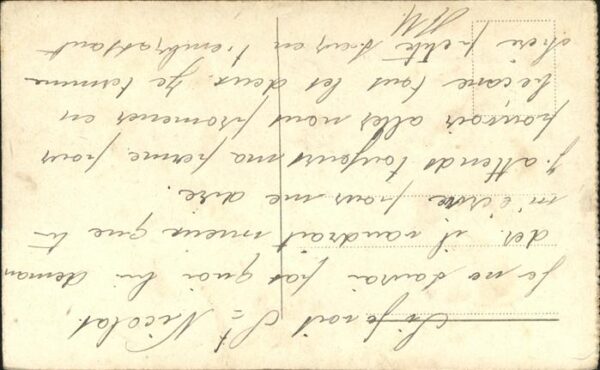 Si j'avais St Nicolas.
Je ne saurai pas quoi lui deman
der il vaudrait mieux que tu
m'écrive pour me dire.
J'attends toujours ma perme pour
pouvoir aller nous promener en
bécane tous les deux. Je termine
chère petite sœur en t'embrassant